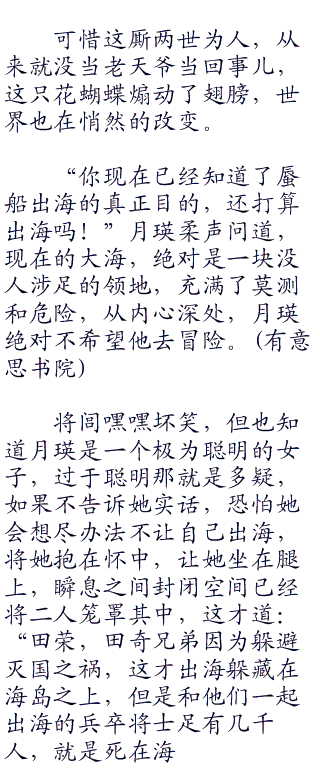 可惜这厮两世为人，从
来就没当老天爷当回事儿，
这只花蝴蝶煽动了翅膀，世
界也在悄然的改变。
“你现在已经知道了蜃
船出海的真正目的，还打算
出海吗！”月瑛柔声问道，
现在的大海，绝对是一块没
人涉足的领地，充满了莫测
和危险，从内心深处，月瑛
绝对不希望他去冒险。(有意
思书院)
将闾嘿嘿坏笑，但也知
道月瑛是一个极为聪明的女
子，过于聪明那就是多疑，
如果不告诉她实话，恐怕她
会想尽办法不让自己出海，
将她抱在怀中，让她坐在腿
上，瞬息之间封闭空间已经
将二人笼罩其中，这才道：
“田荣，田奇兄弟因为躲避
灭国之祸，这才出海躲藏在
海岛之上，但是和他们一起
出海的兵卒将士足有几千
人，就是死在海